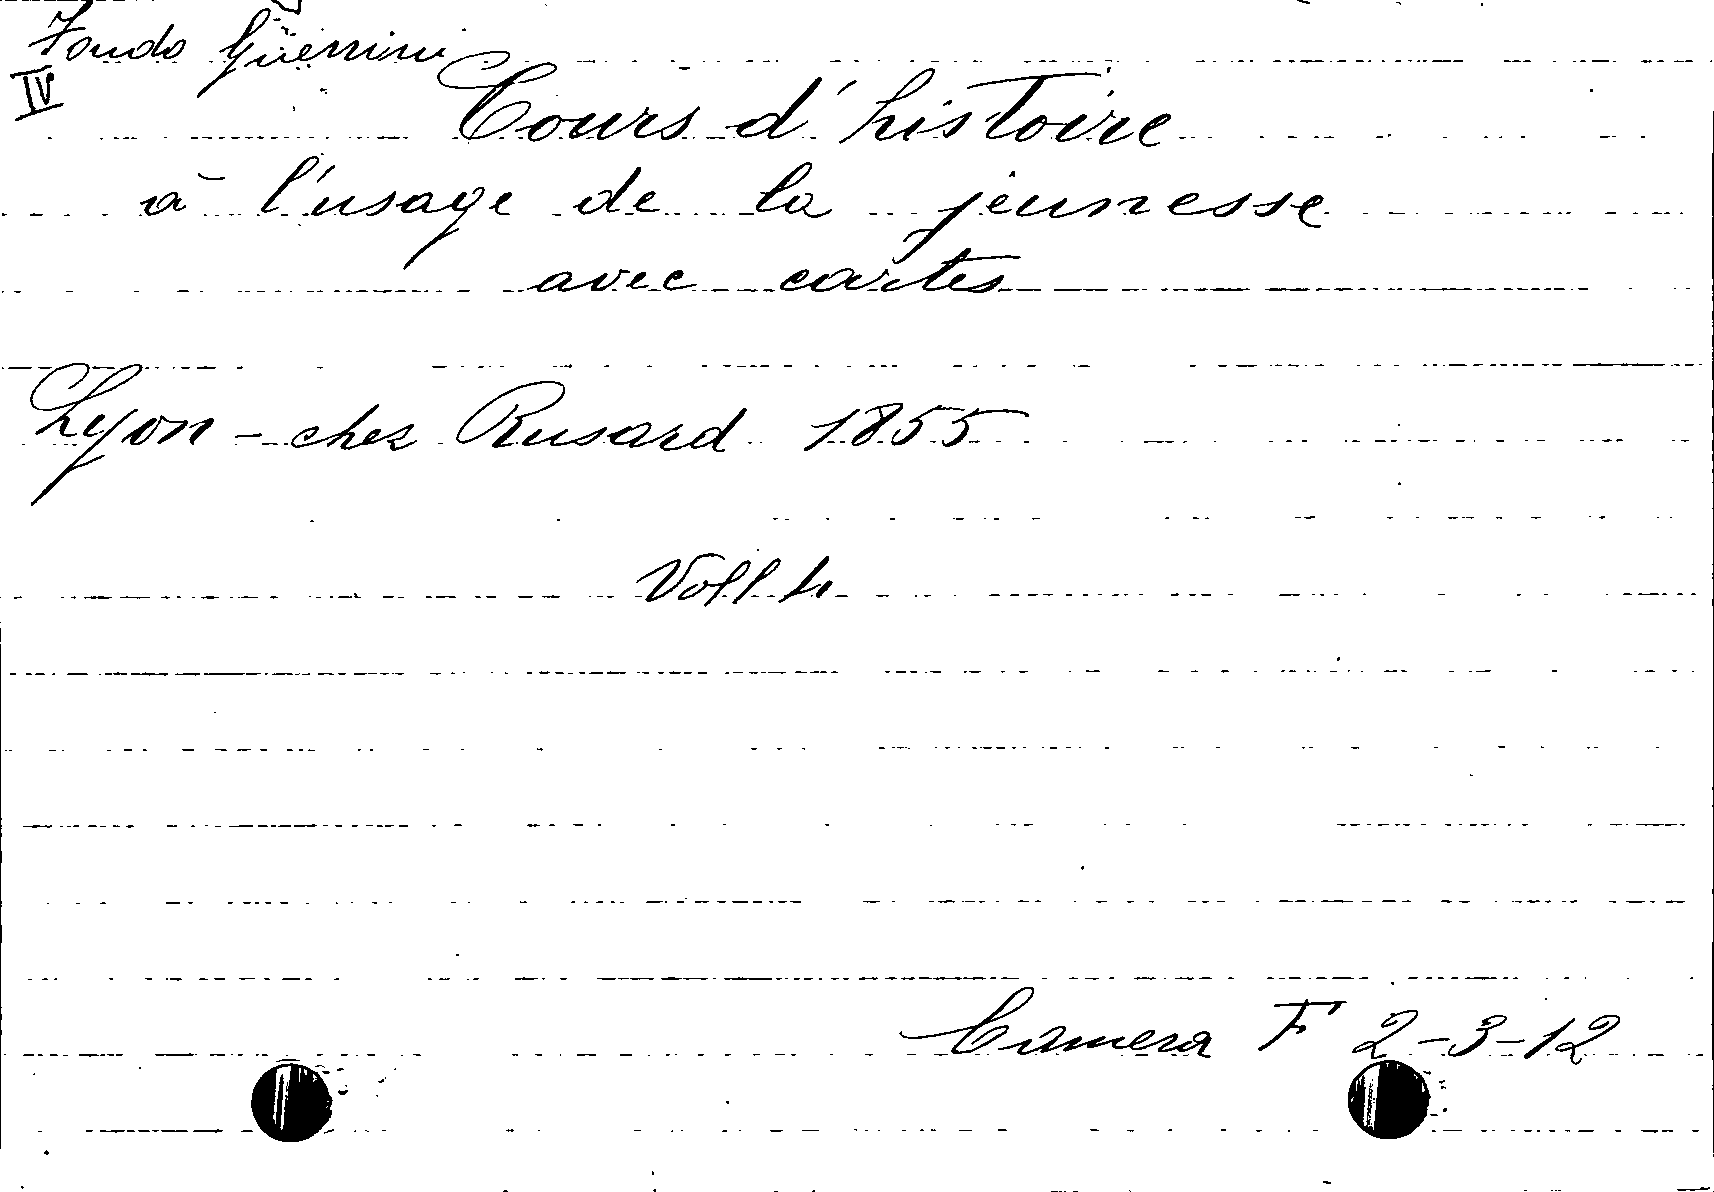 Fondo Guerrini
IV
Cours d'histoire
à l'usage de la jeunesse
avec cartes
Lyon - chez Rusard 1855
Voll 4
Camera F 2-3-12